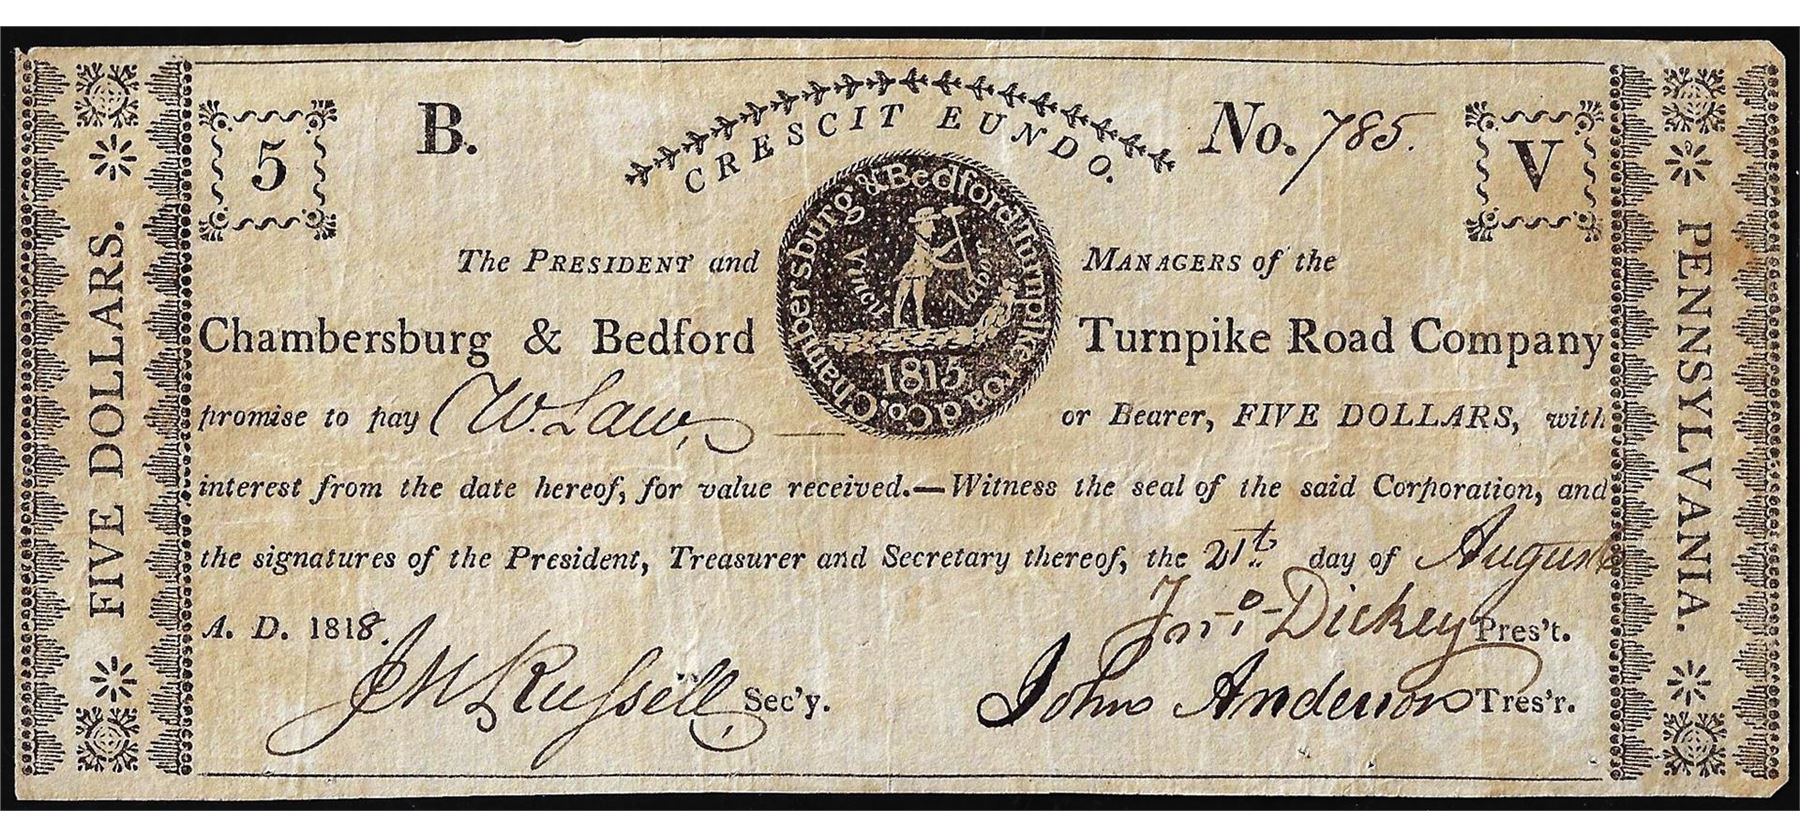 FIVE DOLLARS.
5
B.
CRESCIT EUNDO.
No. 785.
V
PENNSYLVANIA.
The PRESIDENT and MANAGERS of the
Chambersburg & Bedford Turnpike Road Company
Chambersburg & Bedford turnpike road Co
Vincit Labor
1815
promise to pay W. Law, or Bearer, FIVE DOLLARS, with
interest from the date hereof, for value received.—Witness the seal of the said Corporation, and
the signatures of the President, Treasurer and Secretary thereof, the 21st day of August
A. D. 1818.
Jno. Dickey Pres't.
J M Russell, Sec'y.
John Anderson Tres'r.